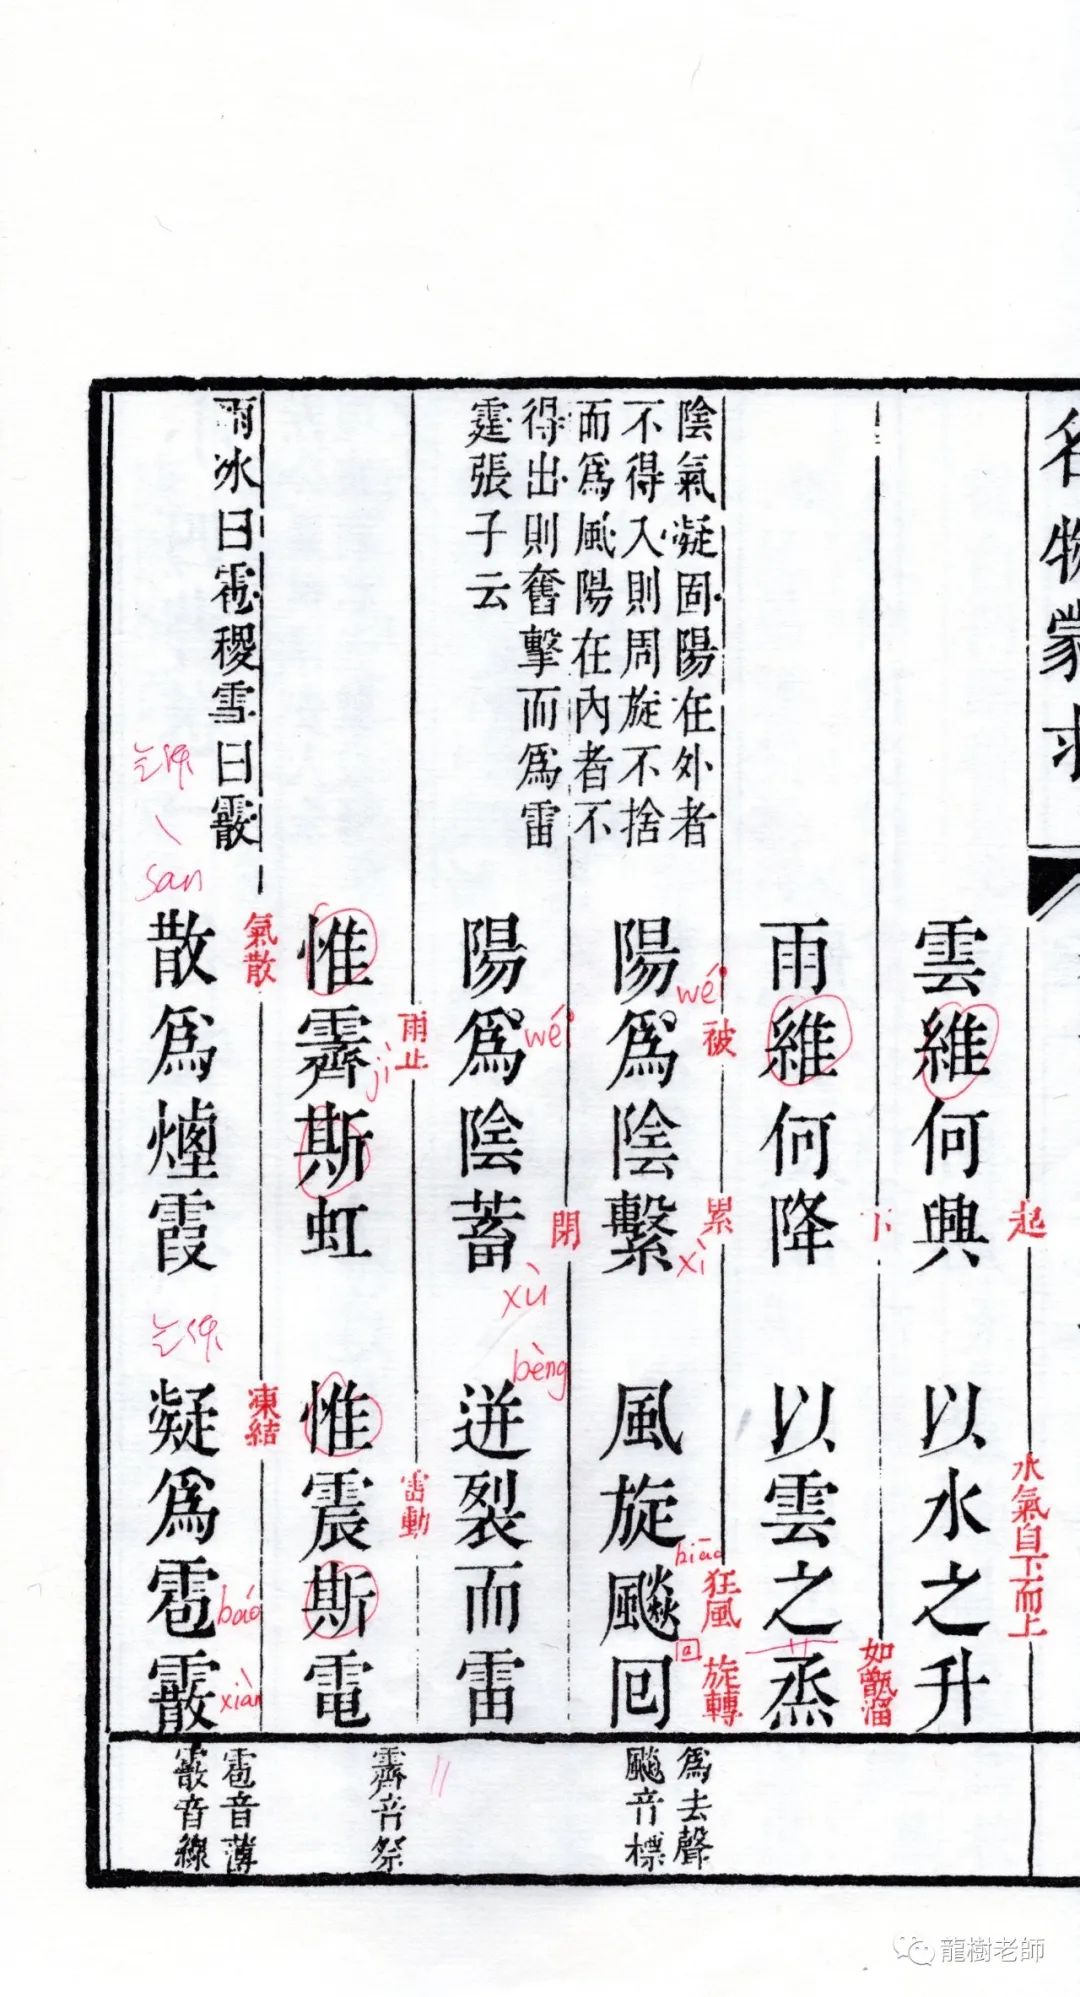 名物蒙求
陰氣凝固陽在外者
不得入則周旋不捨
而爲風陽在內者不
得出則奮擊而爲雷
霆張子云
雨冰曰雹稷雪曰霰
起
水氣自下而上
雲維何興 以水之升
下
如甑溜
雨維何降 以雲之烝
wéi
被
累
xì
biāo
狂風
旋轉
陽爲陰繫 風旋飈回
wéi
閉
xù
bèng
陽爲陰蓄 迸裂而雷
雨止
jì
雷動
惟霽斯虹 惟震斯電
氣散
san
凍結
báo
xiàn
散爲煙霞 凝爲雹霰
爲去聲
飈音標
霽音祭
雹音薄
霰音線
龍樹老師